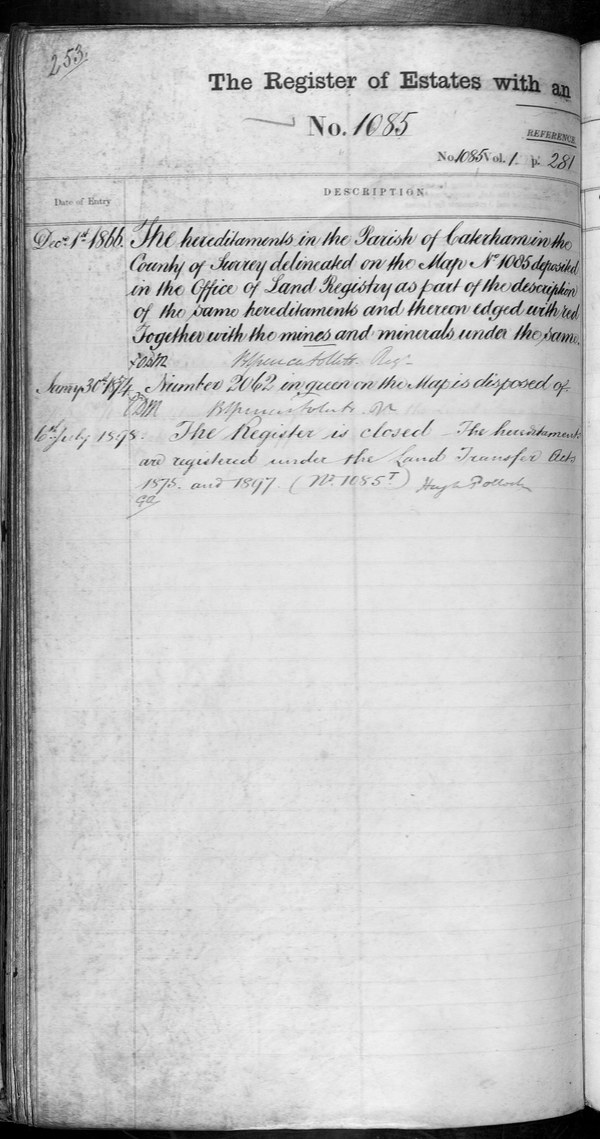 253.
The Register of Estates with an
No. 1085
REFERENCE
No 1085 Vol. 1. p. 281
Date of Entry
DESCRIPTION
Decr. 1st 1866. The hereditaments in the Parish of Caterham in the
County of Surrey delineated on the Map No 1085 deposited
in the Office of Land Registry as part of the description
of the same hereditaments and thereon edged with red
Together with the mines and minerals under the same.
30th 1874 Number 2062 in green on the Map is disposed of
6th July 1898: The Register is closed The hereditaments
are registered under the Land Transfer Acts
1875. and 1897. (No. 1085T) Hugh Pollock